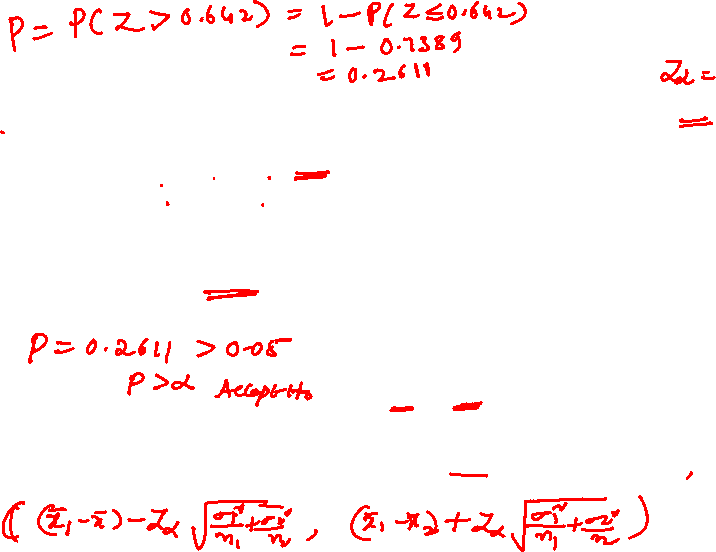 P = P(Z > 0.642) = 1 - P(Z ≤ 0.642)
= 1 - 0.7389
= 0.2611
Zα =
P = 0.2611 > 0.05
P > α Accept H₀
((x̄₁ - x̄) - Zα √(σ₁²/n₁ + σ₂²/n₂), (x̄₁ - x̄₂) + Zα √(σ₁²/n₁ + σ₂²/n₂))